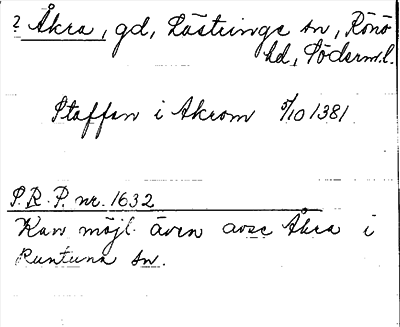 ? Åkra, gd, Lästringe sn, Rönö
hd, Söderml.
Staffan i Akrom 5/10 1381
S.R.P. nr. 1632
Kan möjl. även avse Åkra i
Runtuna sn.